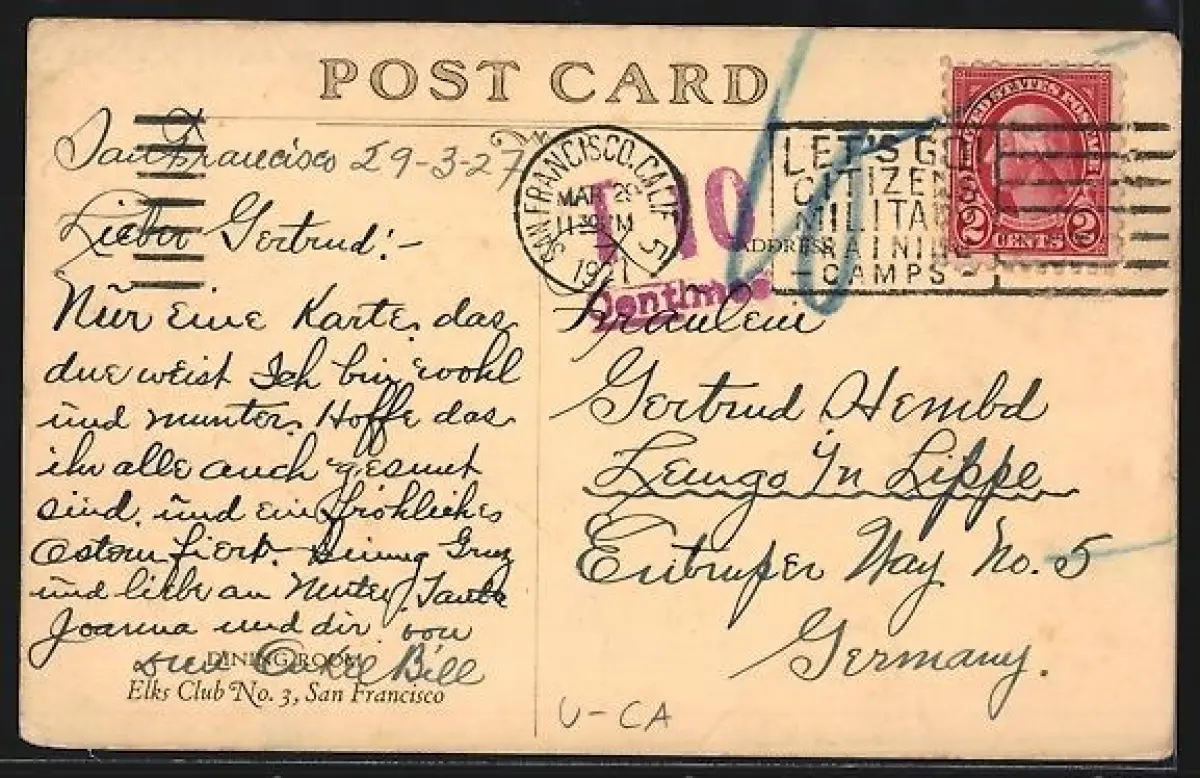 POST CARD
San Francisco 29-3-27
Lieber Gertrud!-
Nür eine Karte, das
due weist Ich bin wohl
und munter. Hoffe das
ihr alle auch gesunt
sind. und ein fröhliches
Ostern fiert. Grus
und liebe an Mutter, Tante
Joanna und dir. von
Onkel Bill
DINING ROOM
Elks Club No. 3, San Francisco
SAN FRANCISCO, CALIF. 5
MAR 29
1927
T 10
Centimes
LET'S GO
CITIZENS
MILITARY
TRAINING
CAMPS
UNITED STATES POSTAGE
2 CENTS 2
ADDRESS
Fräulein
Gertrud Hembd
Lemgo In Lippe
Entruper Way No. 5
Germany.
U-CA